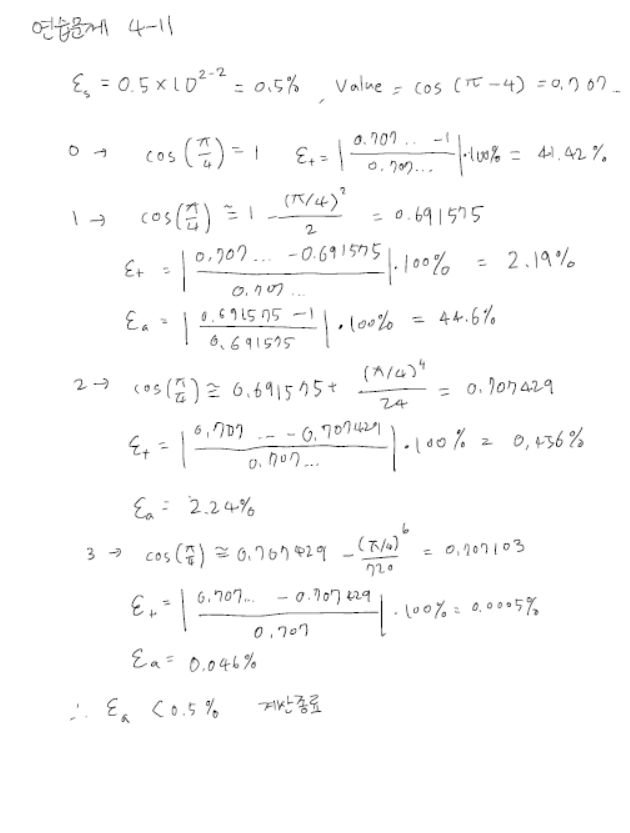 연습문제 4-11
εs = 0.5 × 10^(2-2) = 0.5% , Value = cos (π - 4) = 0.707...
0 → cos(π/4) = 1 εt = | (0.707.. - 1) / 0.707... | · 100% = 41.42%
1 → cos(π/4) ≅ 1 - (π/4)^2 / 2 = 0.691575
εt = | (0.707... - 0.691575) / 0.707... | · 100% = 2.19%
εa = | (0.691575 - 1) / 0.691575 | · 100% = 44.6%
2 → cos(π/4) ≅ 0.691575 + (π/4)^4 / 24 = 0.707429
εt = | (0.707... - 0.707429) / 0.707... | · 100% = 0.456%
εa = 2.24%
3 → cos(π/4) ≅ 0.707429 - (π/4)^6 / 720 = 0.707103
εt = | (0.707... - 0.707429) / 0.707 | · 100% = 0.0005%
εa = 0.046%
∴ εa < 0.5% 계산종료